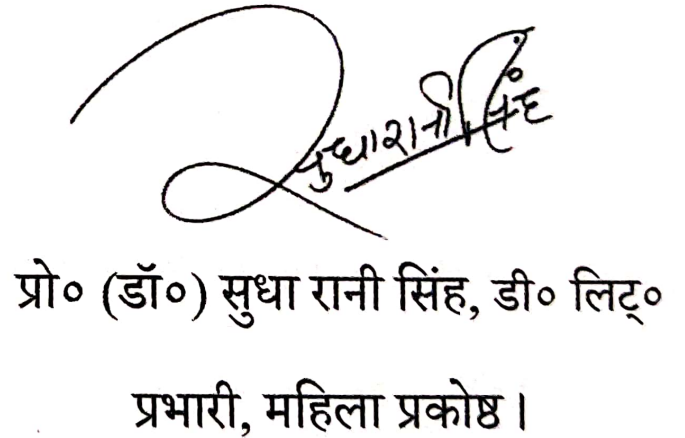 सुधा रानी सिंह
प्रो० (डॉ०) सुधा रानी सिंह, डी० लिट्०
प्रभारी, महिला प्रकोष्ठ।